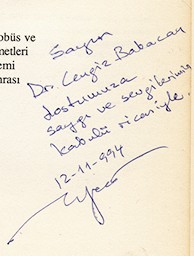 obüs ve
metleri
emi
nrası
Sayın
Dr. Cengiz Babacan
dostumuza
saygı ve sevgilerimin
kabulü ricasıyle.
12-11-994